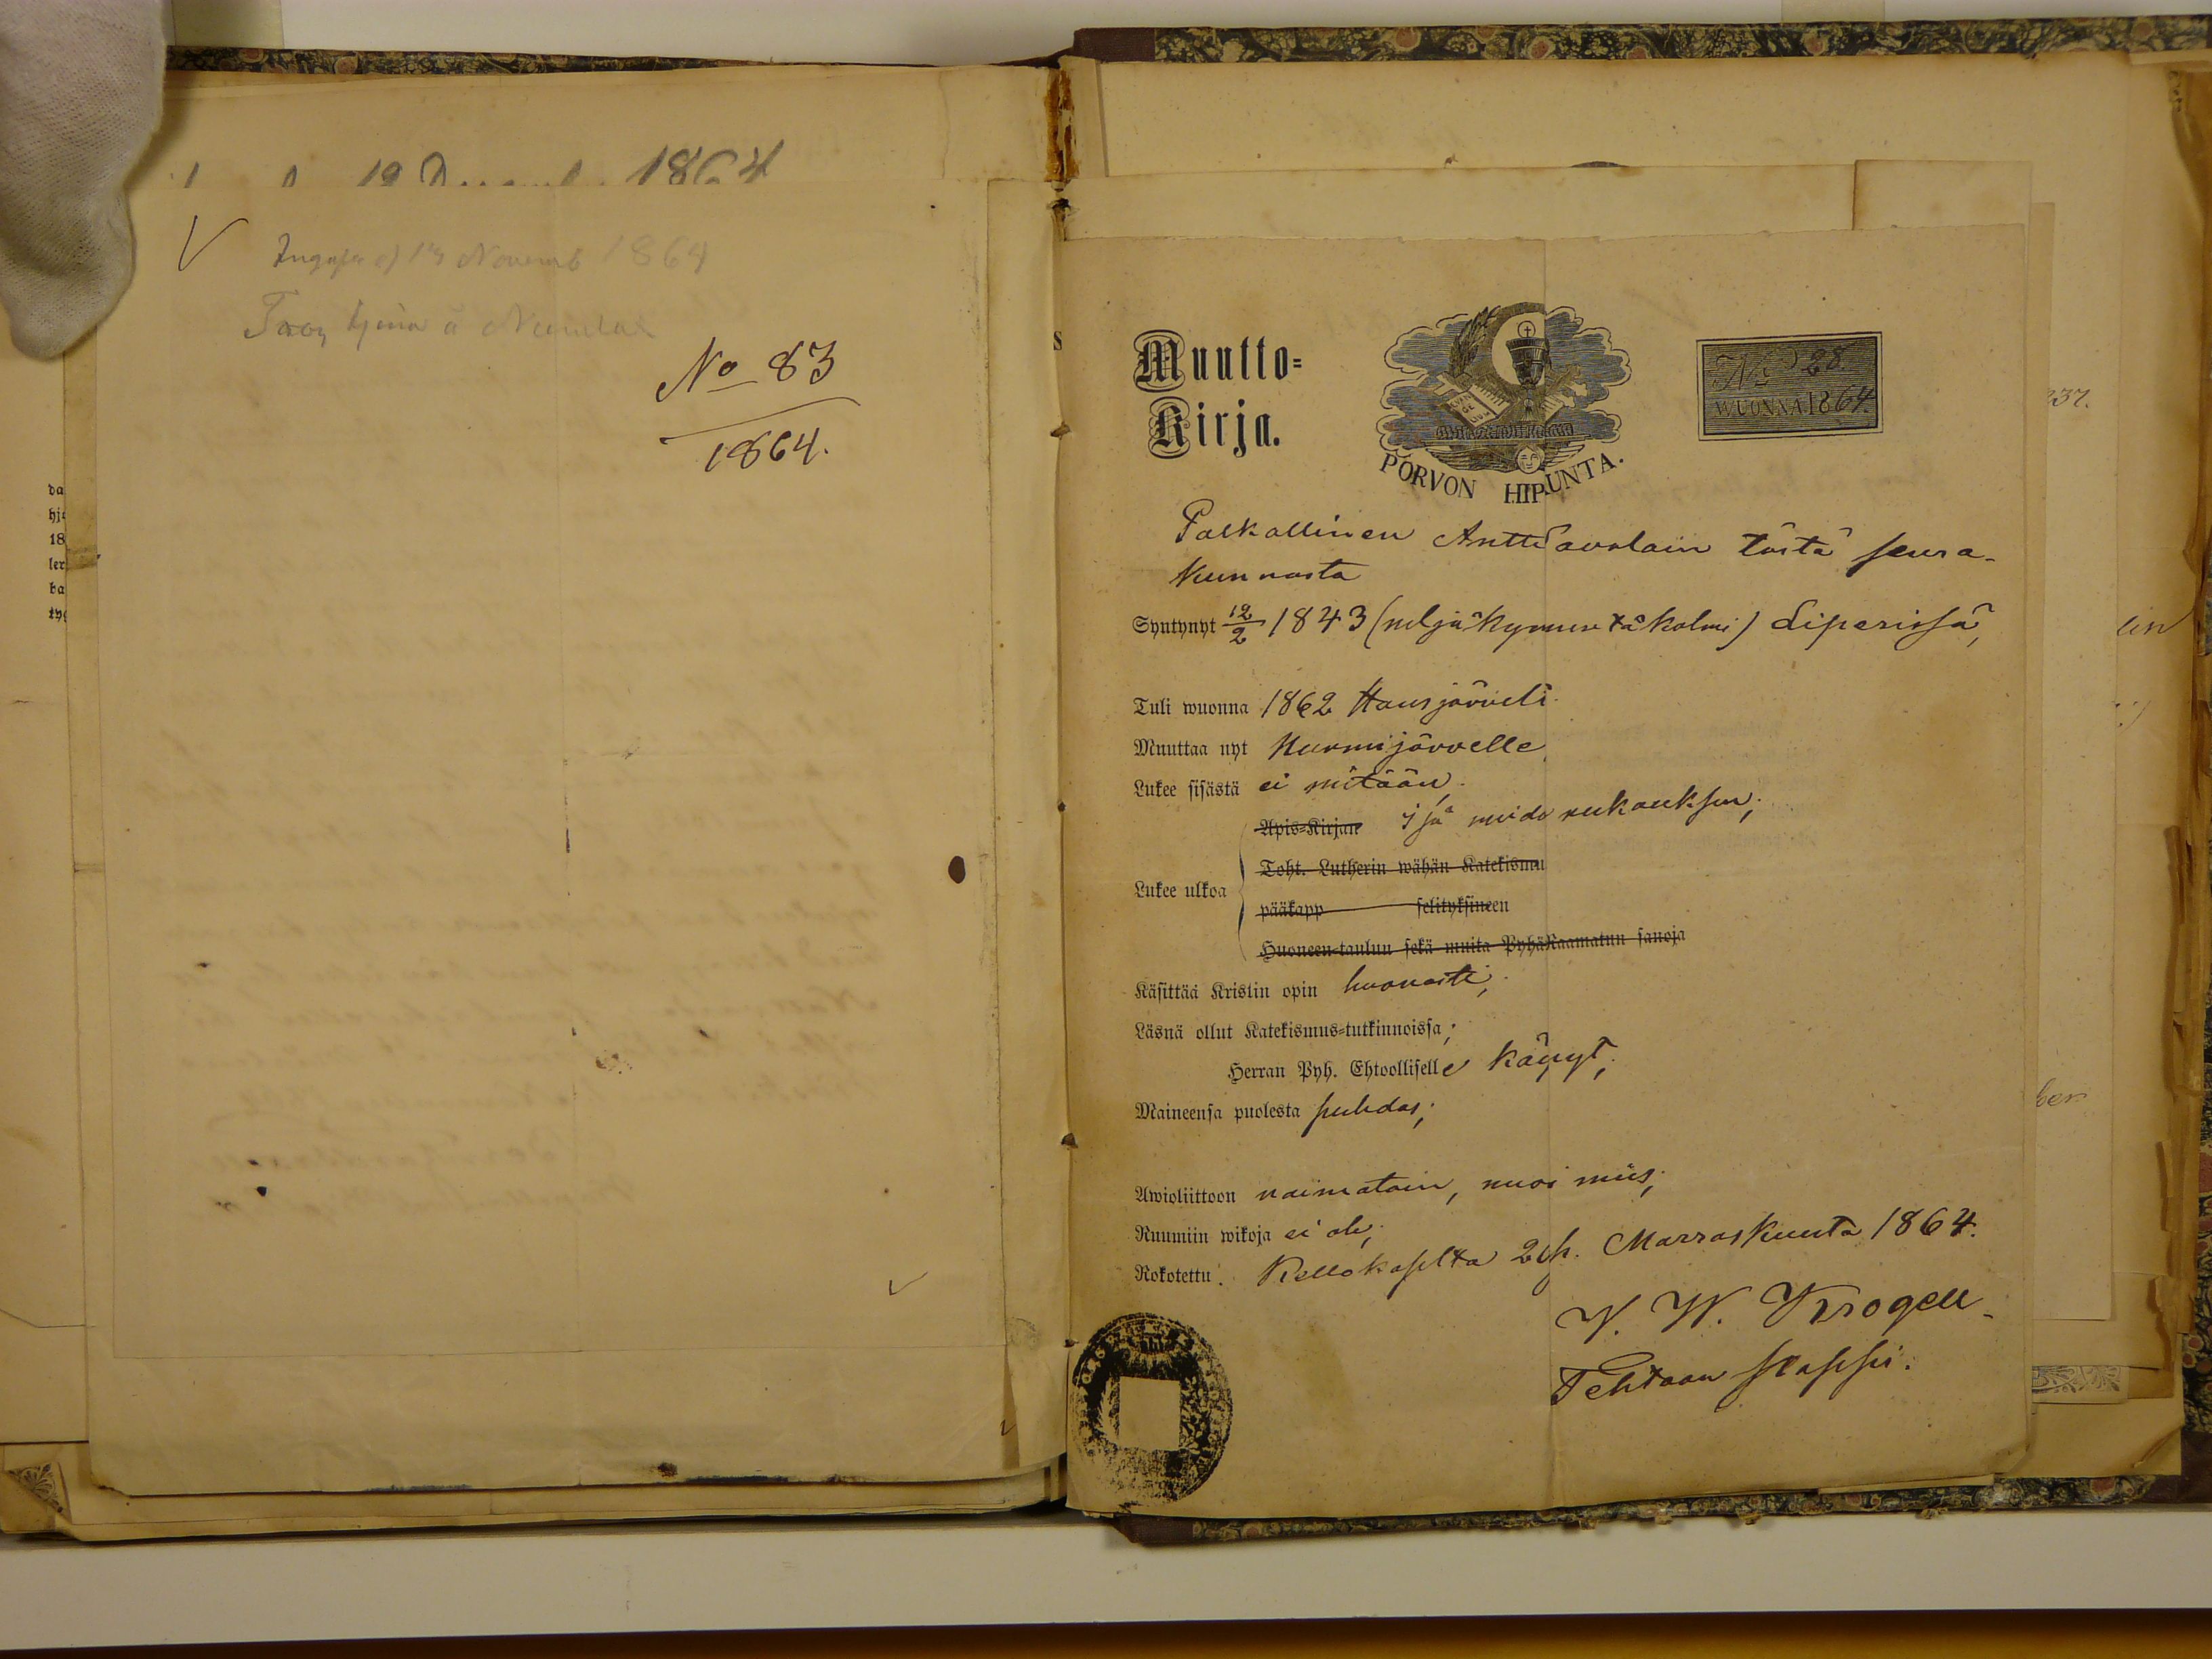 1864
1864
No 83
1864.
da
hj
18
ler
ba
Muutto-
Kirja.
PORVON HIPPUNTA.
No 28.
WUONNA 1864.
Palkallinen Antti Savolain tästä seura-
kunnasta
Syntynyt 12/2 1843 (neljäkymmentäkolmi) Liperissä,
Tuli wuonna 1862 Hausjärvelt
Muuttaa nyt Nurmijärvelle
Lukee sisästä ei mitään,
Apis-Kirjan Isä meidä rukouksen;
Toht. Lutherin wähän Katekismu
Lukee ulkoa
pääkapp selityksineen
Huoneen-taulun sekä muita Pyhä Raamatun sanoja
Käsittää Kristin opin huonosti;
Läsnä ollut Katekismus-tutkinnoissa;
Herran Pyh. Ehtoolliselle käynyt;
Maineensa puolesta puhdas;
Awioliittoon naimatoin, nuori mies;
Ruumiin wikoja ei ole;
Rokotettu: Kellokoselta 2 p. Marraskuuta 1864.
V. W. Krogell
Tehtaan pappi.
237.
lin
ber